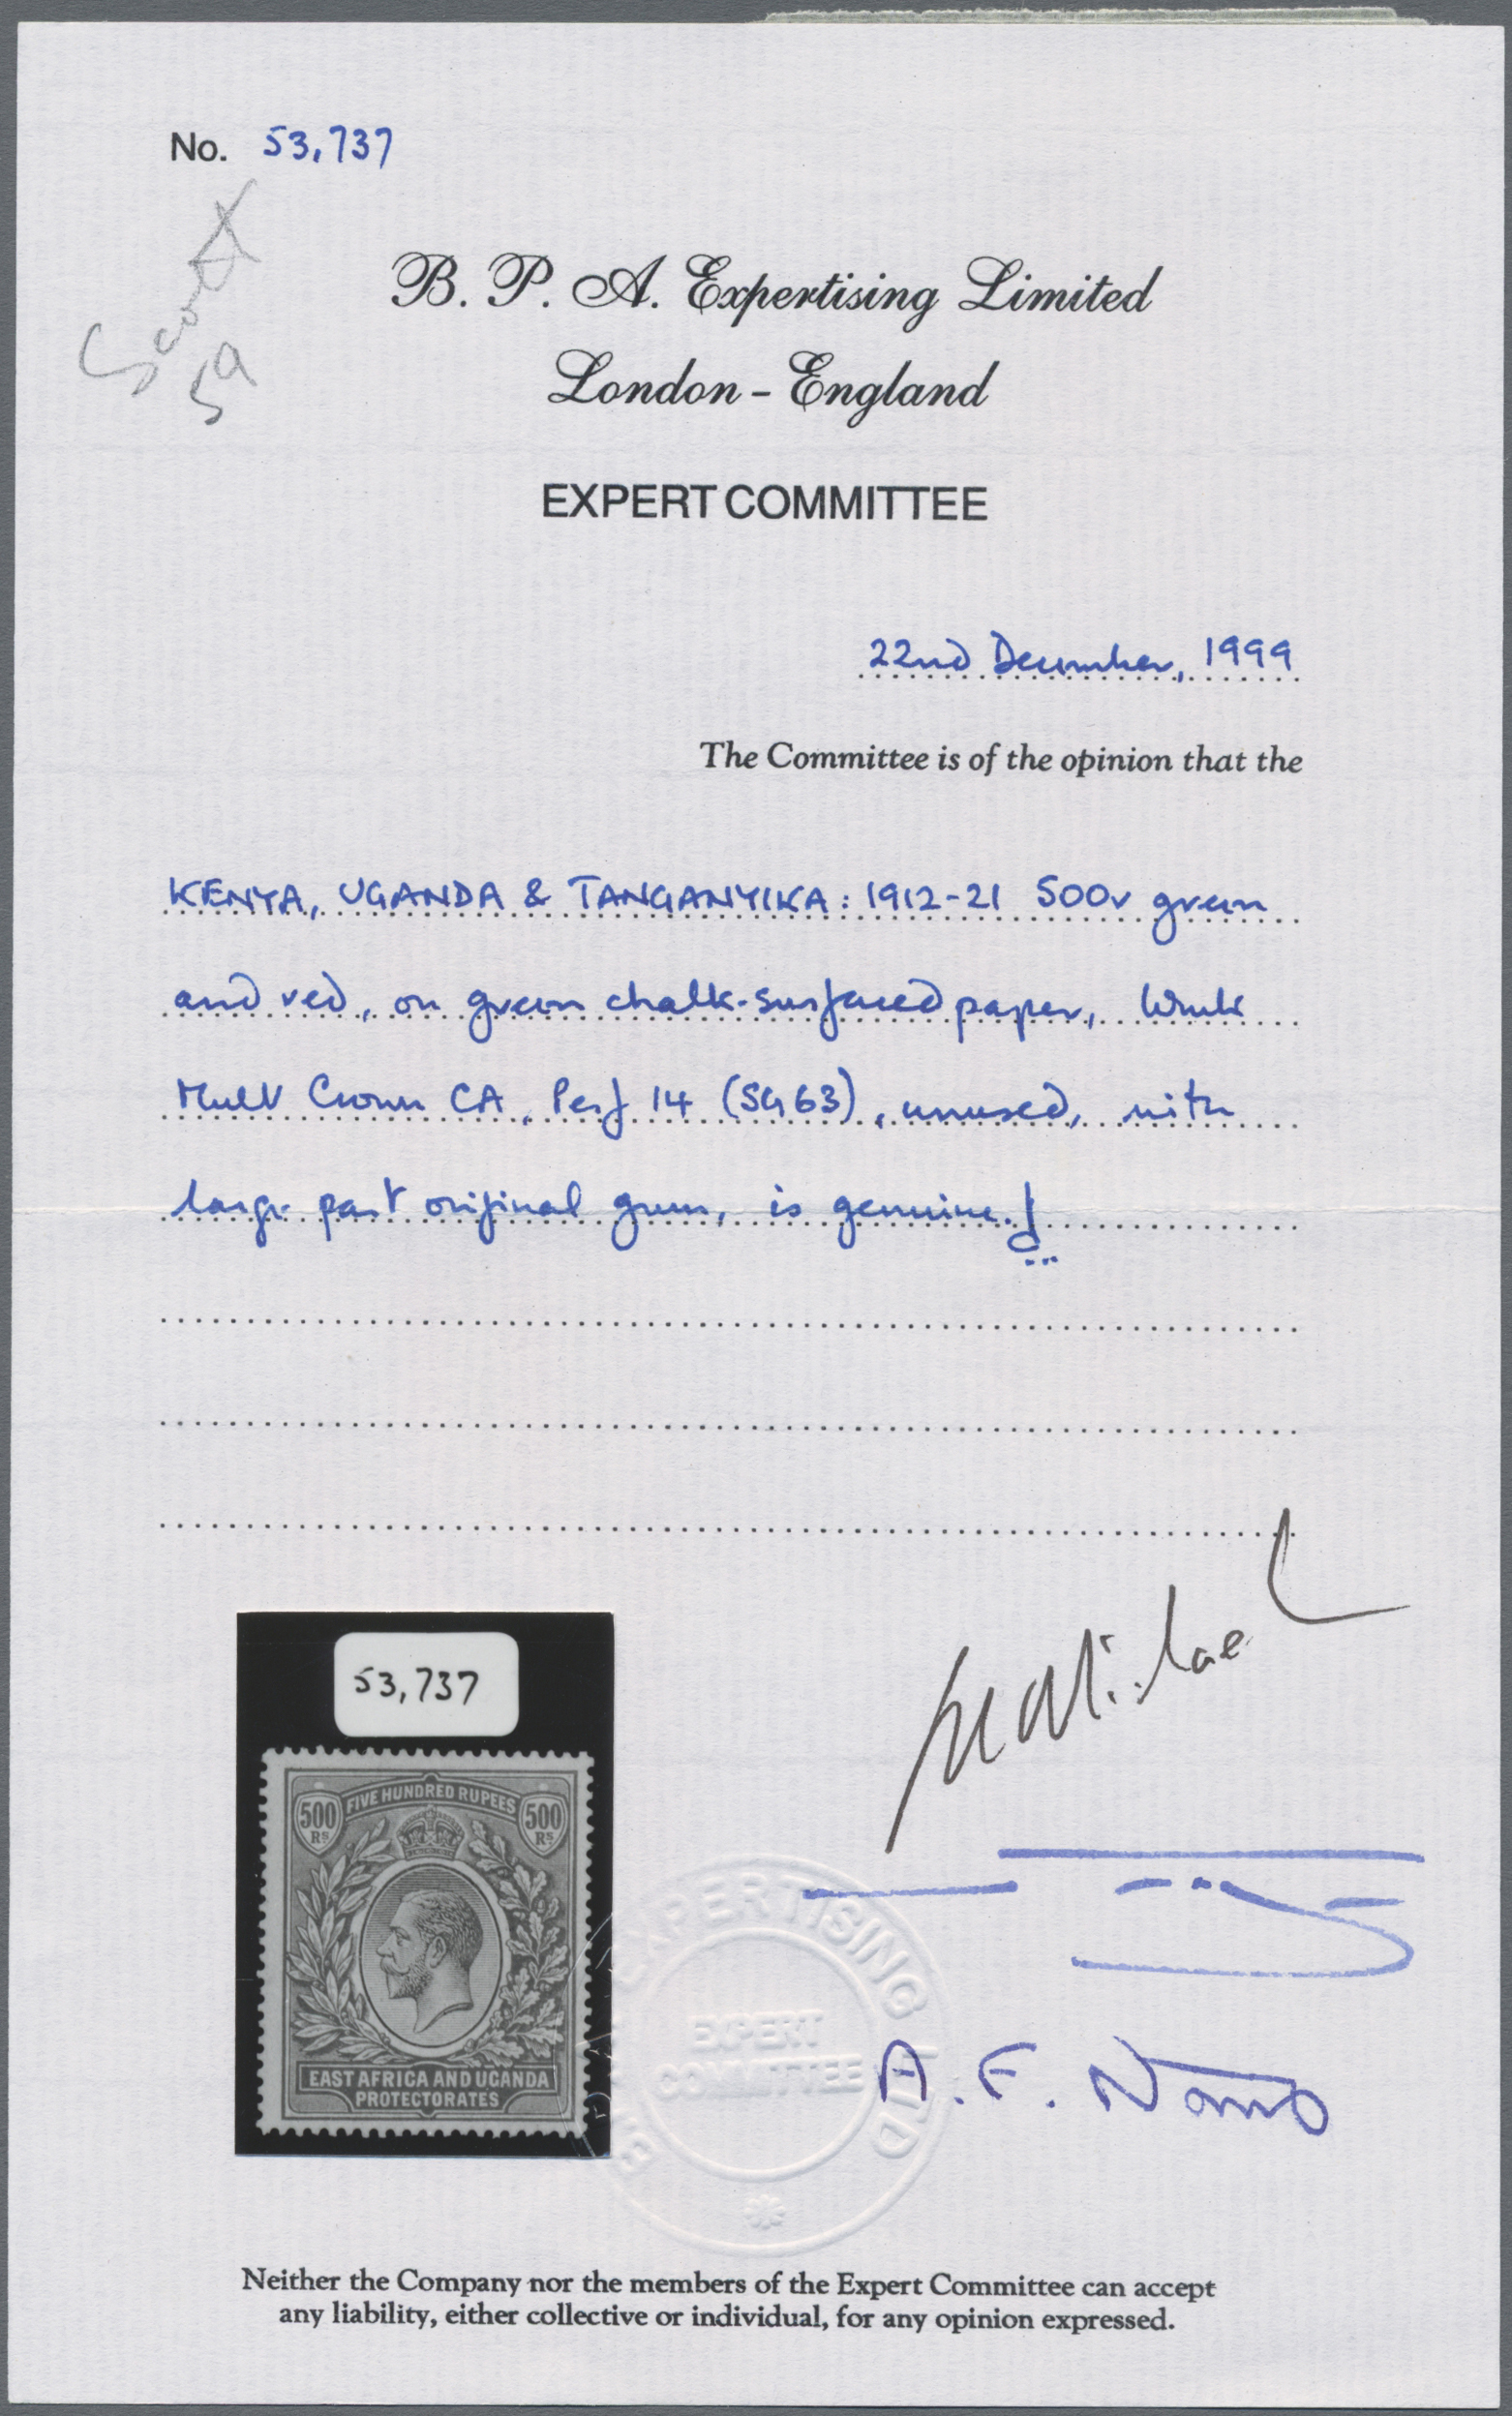 No. 53,737
Scott
59
B. P. A. Expertising Limited
London - England
EXPERT COMMITTEE
22nd December, 1999
The Committee is of the opinion that the
KENYA, UGANDA & TANGANYIKA: 1912-21 500r green
and red, on green chalk-surfaced paper, Wmk
Mult Crown CA, Perf 14 (SG63), unused, with
large part original gum, is genuine.
53,737
FIVE HUNDRED RUPEES
500 Rs
500 Rs
EAST AFRICA AND UGANDA
PROTECTORATES
EXPERTISING LTD
EXPERT
COMMITTEE
A. F.
Neither the Company nor the members of the Expert Committee can accept
any liability, either collective or individual, for any opinion expressed.